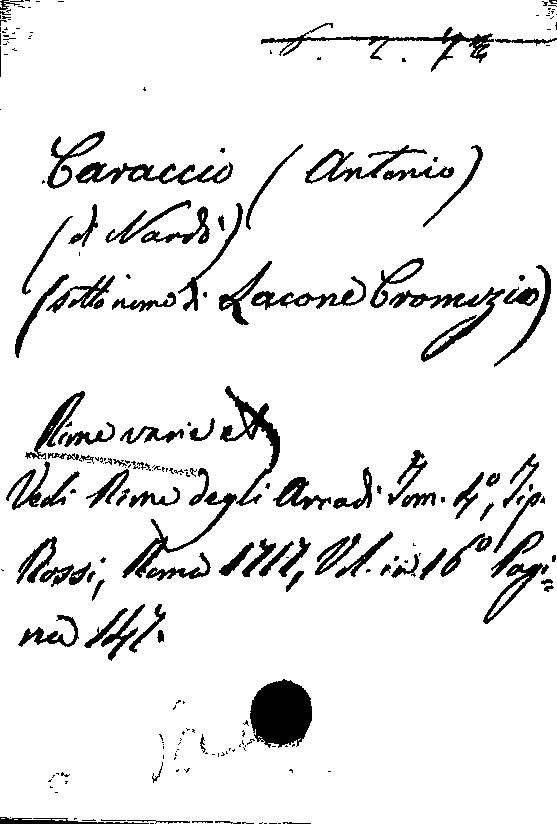 6. 2. 72
Caraccio (Antonio)
(di Nardò)
(sotto nome di Lacone Cromizio)
Rime varie
Vedi Rime degli Arcadi Tom. 4º, Tip.
Rossi, Roma 1717, Vol. in 16º Pagi=
na 147.